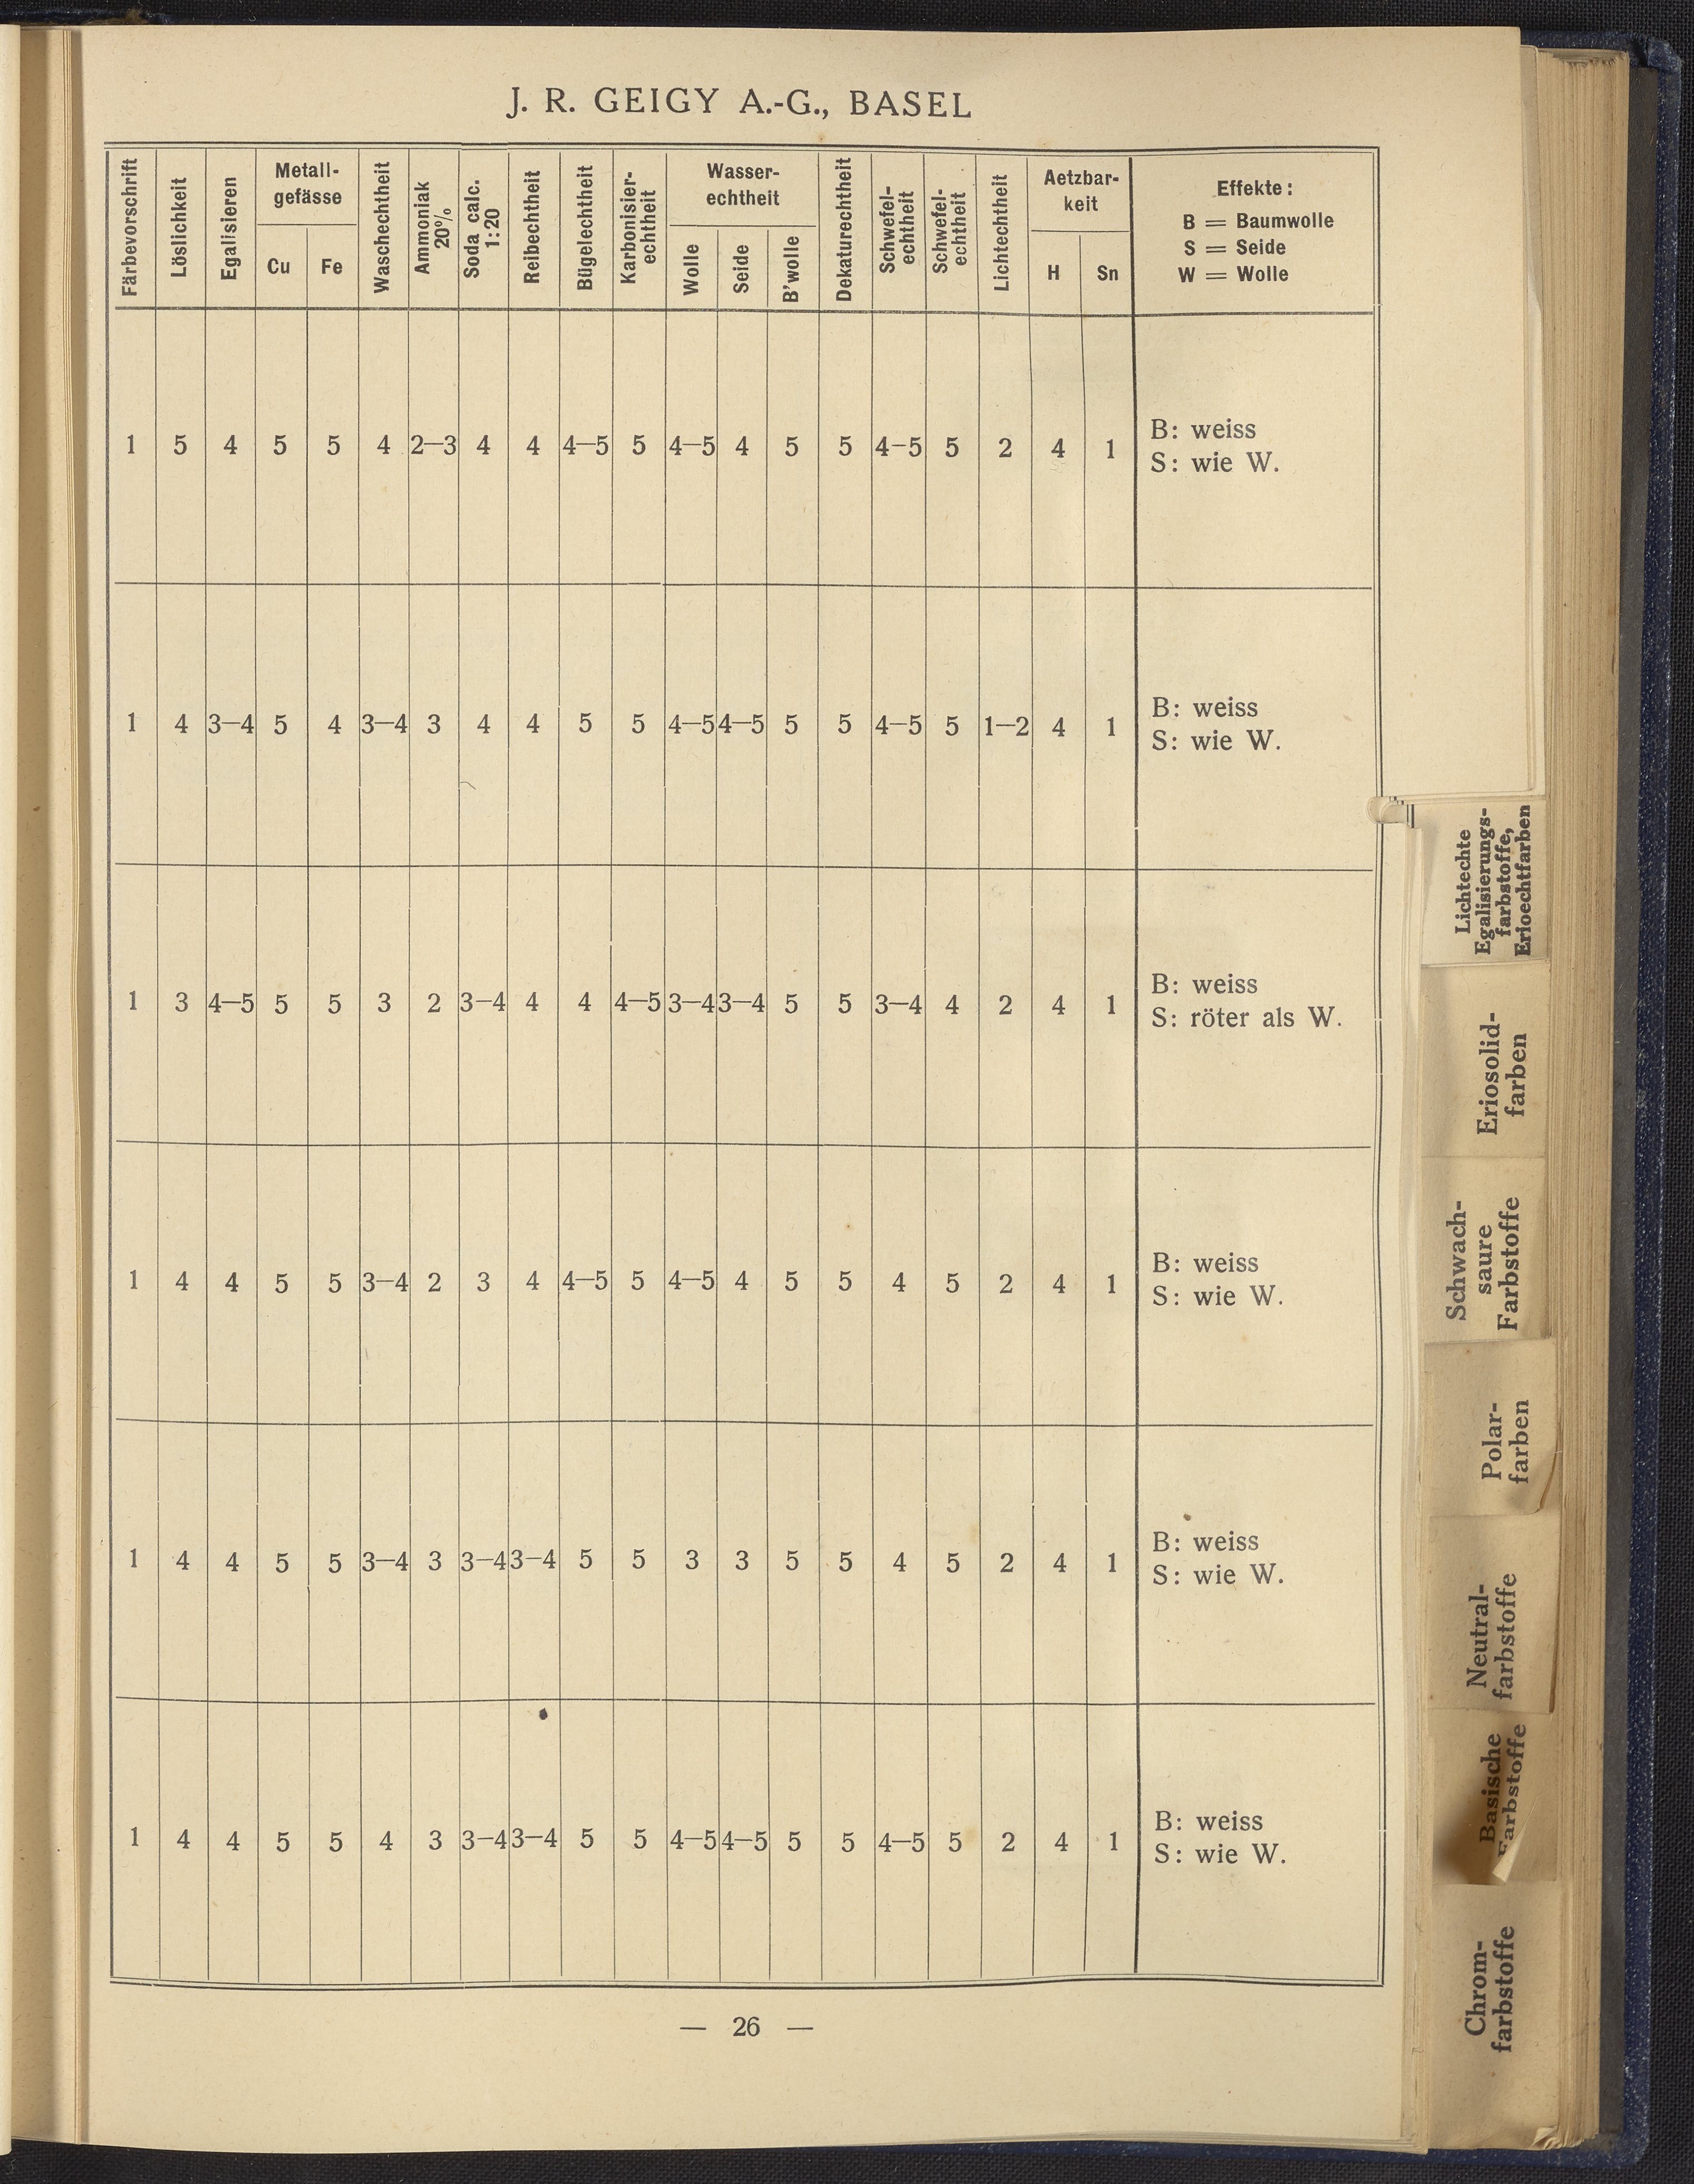 J. R. GEIGY A.-G., BASEL
Färbevorschrift
Löslichkeit
Egalisieren
Metall-
gefässe
Cu Fe
Waschechtheit
Ammoniak
20%
Soda calc.
1:20
Reibechtheit
Bügelechtheit
Karbonisier-
echtheit
Wasser-
echtheit
Wolle
Seide
B'wolle
Dekaturechtheit
Schwefel-
echtheit
Schwefel-
echtheit
Lichtechtheit
Aetzbar-
keit
H Sn
Effekte:
B = Baumwolle
S = Seide
W = Wolle
1 5 4 5 5 4 2—3 4 4 4—5 5 4—5 4 5 5 4—5 5 2 4 1
B: weiss
S: wie W.
1 4 3—4 5 4 3—4 3 4 4 5 5 4—5 4—5 5 5 4—5 5 1—2 4 1
B: weiss
S: wie W.
1 3 4—5 5 5 3 2 3—4 4 4 4—5 3—4 3—4 5 5 3—4 4 2 4 1
B: weiss
S: röter als W.
1 4 4 5 5 3—4 2 3 4 4—5 5 4—5 4 5 5 4 5 2 4 1
B: weiss
S: wie W.
1 4 4 5 5 3—4 3 3—4 3—4 5 5 3 3 5 5 4 5 2 4 1
B: weiss
S: wie W.
1 4 4 5 5 4 3 3—4 3—4 5 5 4—5 4—5 5 5 4—5 5 2 4 1
B: weiss
S: wie W.
— 26 —
Lichtechte
Egalisierungs-
farbstoffe,
Erioechtfarben
Eriosolid-
farben
Schwach-
saure
Farbstoffe
Polar-
farben
Neutral-
farbstoffe
Basische
Farbstoffe
Chrom-
farbstoffe